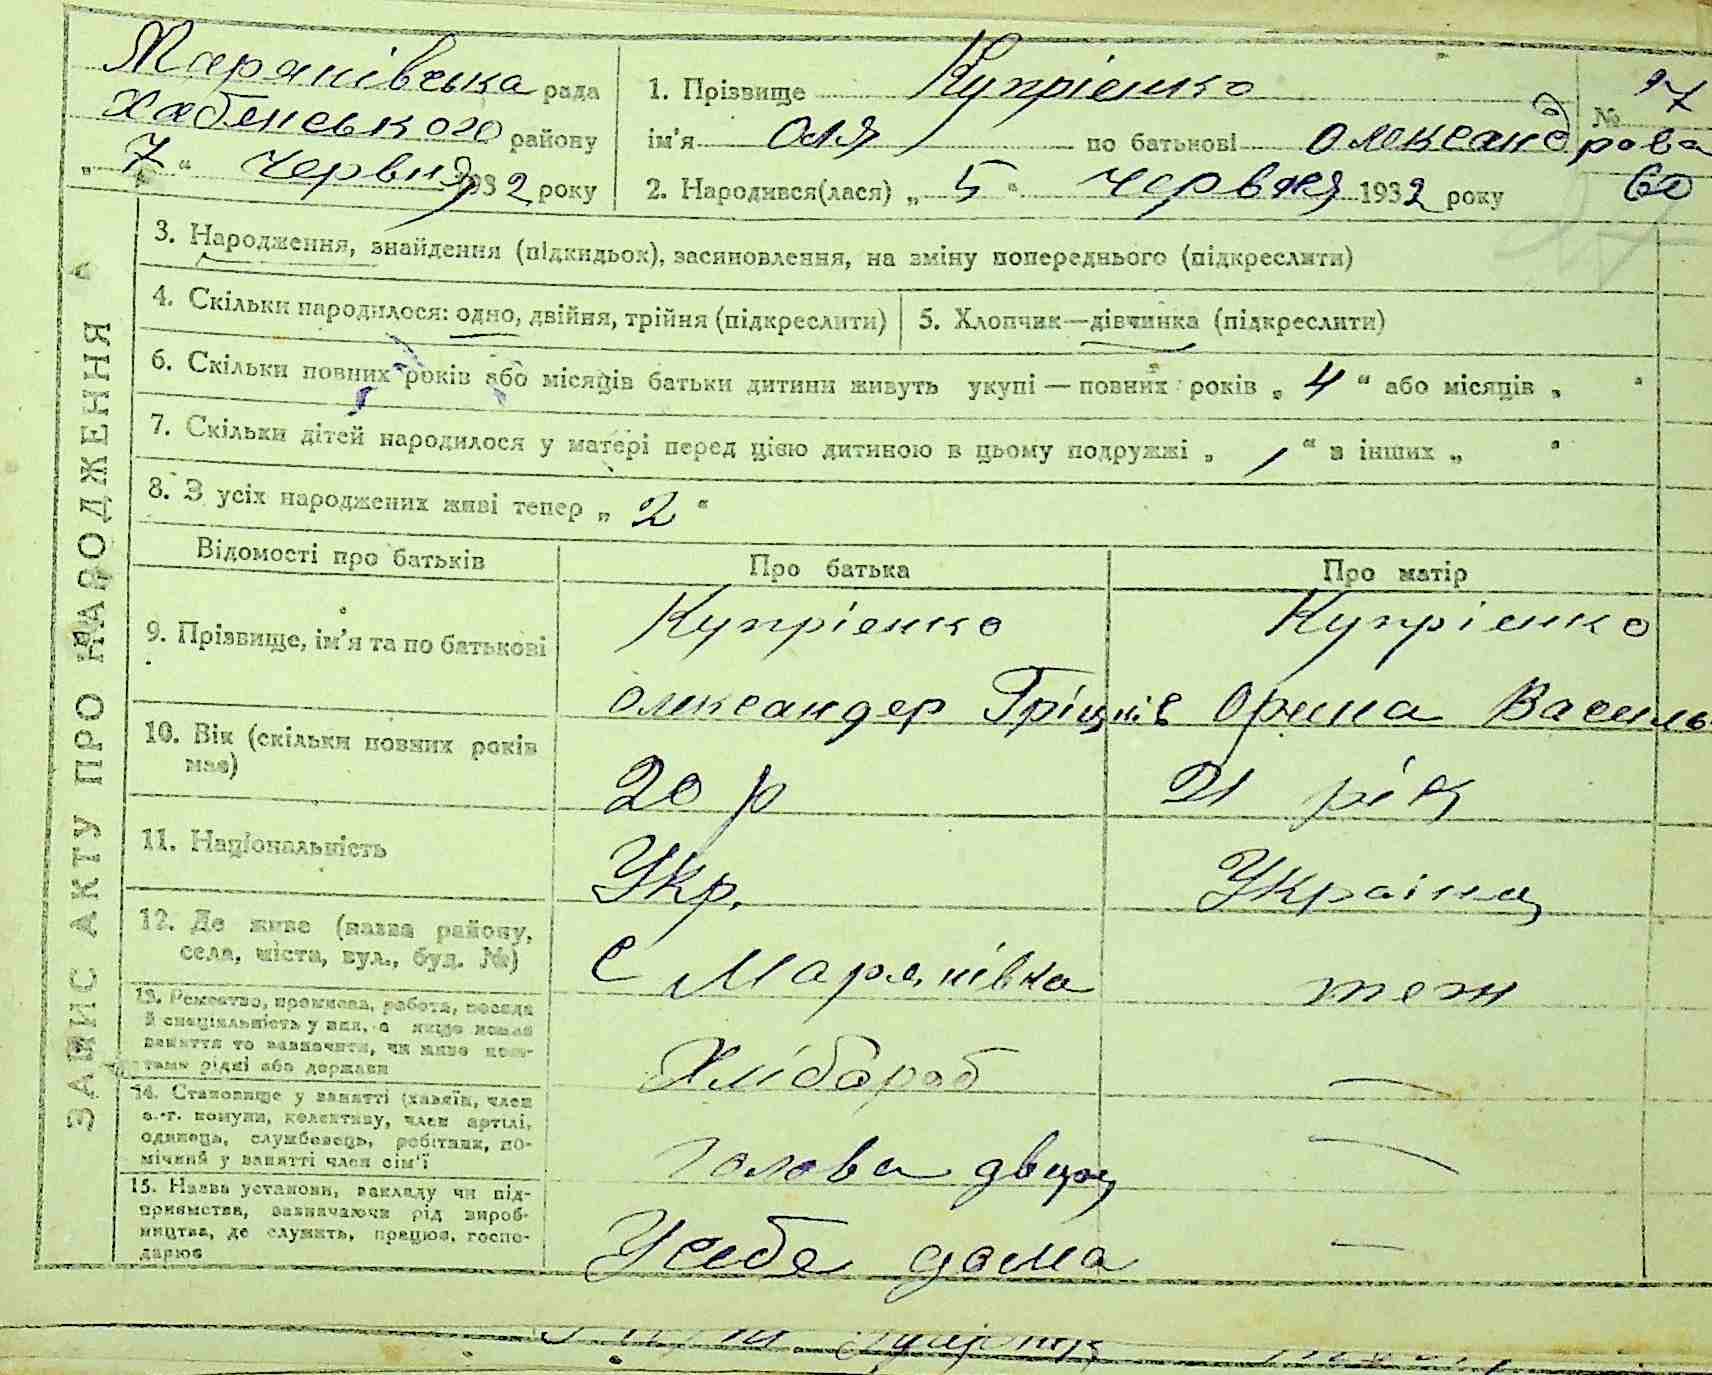 Марянівська рада
Хабенського району
„ 7 “ Червня 1932 року
1. Прізвище Купрієнко
№ 17
ім'я Оля по батькові Олександрова
2. Народився(лася) „ 5 “ червня 1932 року 60
ЗАПИС АКТУ ПРО НАРОДЖЕННЯ
3. Народження, знайдення (підкидьок), засиновлення, на зміну попереднього (підкреслити)
4. Скільки народилося: одно, двійня, трійня (підкреслити)
5. Хлопчик—дівчинка (підкреслити)
6. Скільки повних років або місяців батьки дитини живуть укупі — повних років „ 4 “ або місяців „ “
7. Скільки дітей народилося у матері перед цією дитиною в цьому подружжі „ 1 “ в інших „ “
8. З усіх народжених живі тепер „ 2 “
Відомості про батьків Про батька Про матір
9. Прізвище, ім'я та по батькові
Купрієнко
Олександер Гріцків
Купрієнко
Орина Василь
10. Вік (скільки повних років
має)
20 р
21 рік
11. Національність
Укр.
Украінц
12. Де живе (назва району,
села, міста, вул., буд. №)
С Марянівка
теж
13. Ремество, промисел, робота, посада
й спеціяльність у них, а якщо немає
заняття то зазначити, чи живе кош-
тами рідні або держави
Хлібороб
—
14. Становище у занятті (хазяїн, член
с.-г. комуни, колективу, член артілі,
одинець, службовець, робітник, по-
мічний у занятті член сім'ї
голова двору
—
15. Назва установи, закладу чи під-
приємства, зазначаючи рід вироб-
ництва, де служить, працює, госпо-
дарює
У себе дома
—